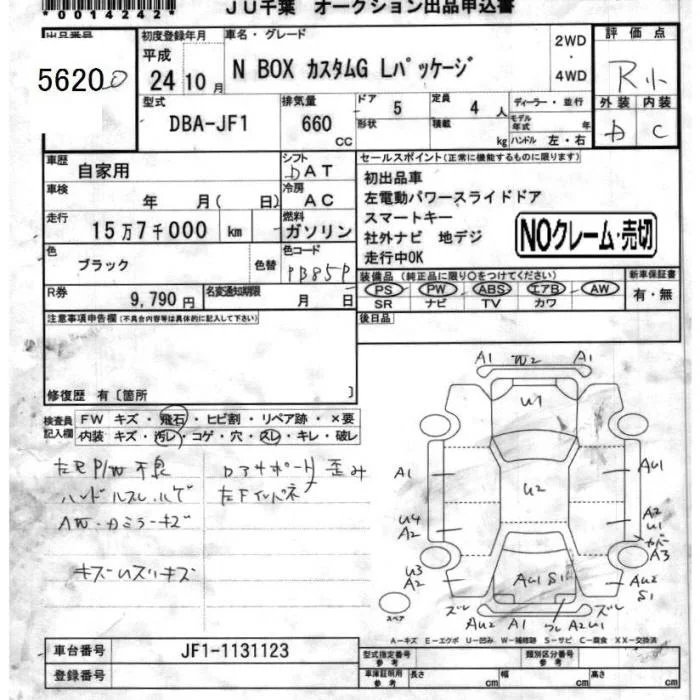 *00142442*
JU千葉 オークション出品申込書
出品番号
56200
初度登録年月
平成
24 10月
車名・グレード
N BOX カスタムG Lパッケージ
2WD
・
4WD
評価点
R小
外装 内装
D C
型式
DBA-JF1
排気量
660
CC
ドア 5
形状
定員 4 人
積載 kg
ディーラー・並行
モデル年式 年
ハンドル 左・右
車歴
自家用
シフト
DAT
車検
年 月( 日)
冷房
AC
走行
15万7千000 km
燃料
ガソリン
色
ブラック
色替
色コード
PB85P
R券
9,790円
名変通知期限
月 日
セールスポイント(正常に機能するものに限ります)
初出品車
左電動パワースライドドア
スマートキー
社外ナビ 地デジ
走行中OK
NOクレーム・売切
装備品 (純正品に限り○をつけてください)
PS PW ABS エアB AW
SR ナビ TV カワ
新車保証書
有・無
注意事項申告欄(不具合内容等は具体的に記入して下さい)
後日品
修復歴 有〔箇所 〕
検査員記入欄
FW キズ・飛石・ヒビ割・リペア跡・×要
内装 キズ・汚レ・コゲ・穴・スレ・キレ・破レ
左R P/W 不良
ハンドルスレ.ハゲ
AW.カミラーキズ
キズハズリキズ
Dアサポート歪み
左Fインパネ
A1 W2 A1
U1
A1 AU1
U2
U4 A2
A2 U1
カバー
U3 A2
A3
AU1 S1
AU2 S1
ズレ ズレ
AU2 A1 ワレ A2U1
スペア
A-キズ E-エクボ U-凹み W-補修跡 S-サビ C-腐食 XX-交換済
車台番号
JF1-1131123
登録番号
型式指定番号
参考
類別区分番号
参考
車庫証明用
参考
長さ cm 幅 cm 高さ cm